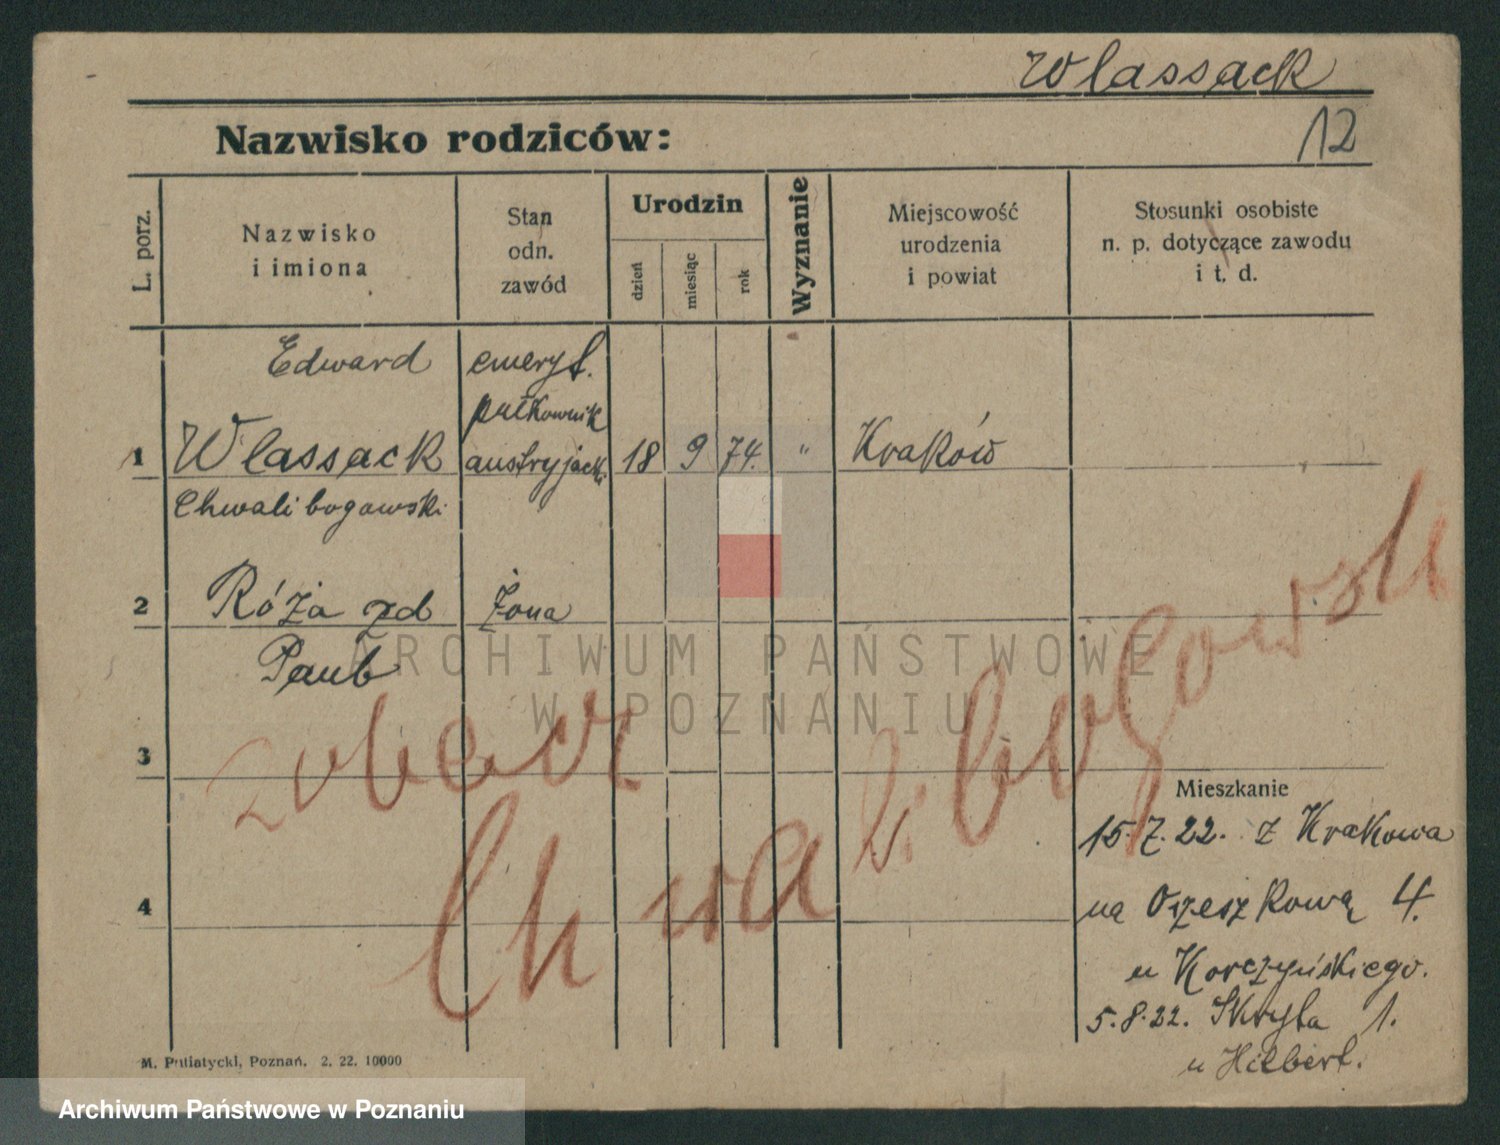 Wlassack
12
Nazwisko rodziców:
L. porz.
Nazwisko
i imiona
Stan
odn.
zawód
Urodzin
dzień
miesiąc
rok
Wyznanie
Miejscowość
urodzenia
i powiat
Stosunki osobiste
n. p. dotyczące zawodu
i t. d.
Edward emeryt.
pułkownik
1 Wlassack austryjacki 18 9 74. " Kraków
Chwalibogowski
2 Róża zd żona
Paub
ARCHIWUM PAŃSTWOWE
W POZNANIU
3 zobacz
Chwalibogowski
4
Mieszkanie
15.7.22. z Krakowa
na Orzeszkową 4.
u Korczyńskiego.
5.8.22. Skryta 1.
u Hilbert.
M. Putiatycki, Poznań. 2. 22. 10000
Archiwum Państwowe w Poznaniu